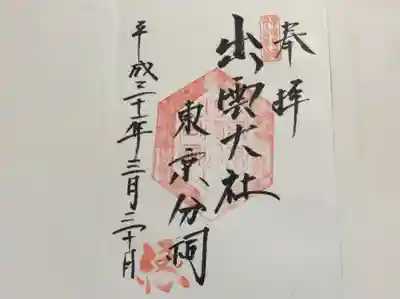 奉拝
出雲大社
東京分祠
平成三十一年三月三十日